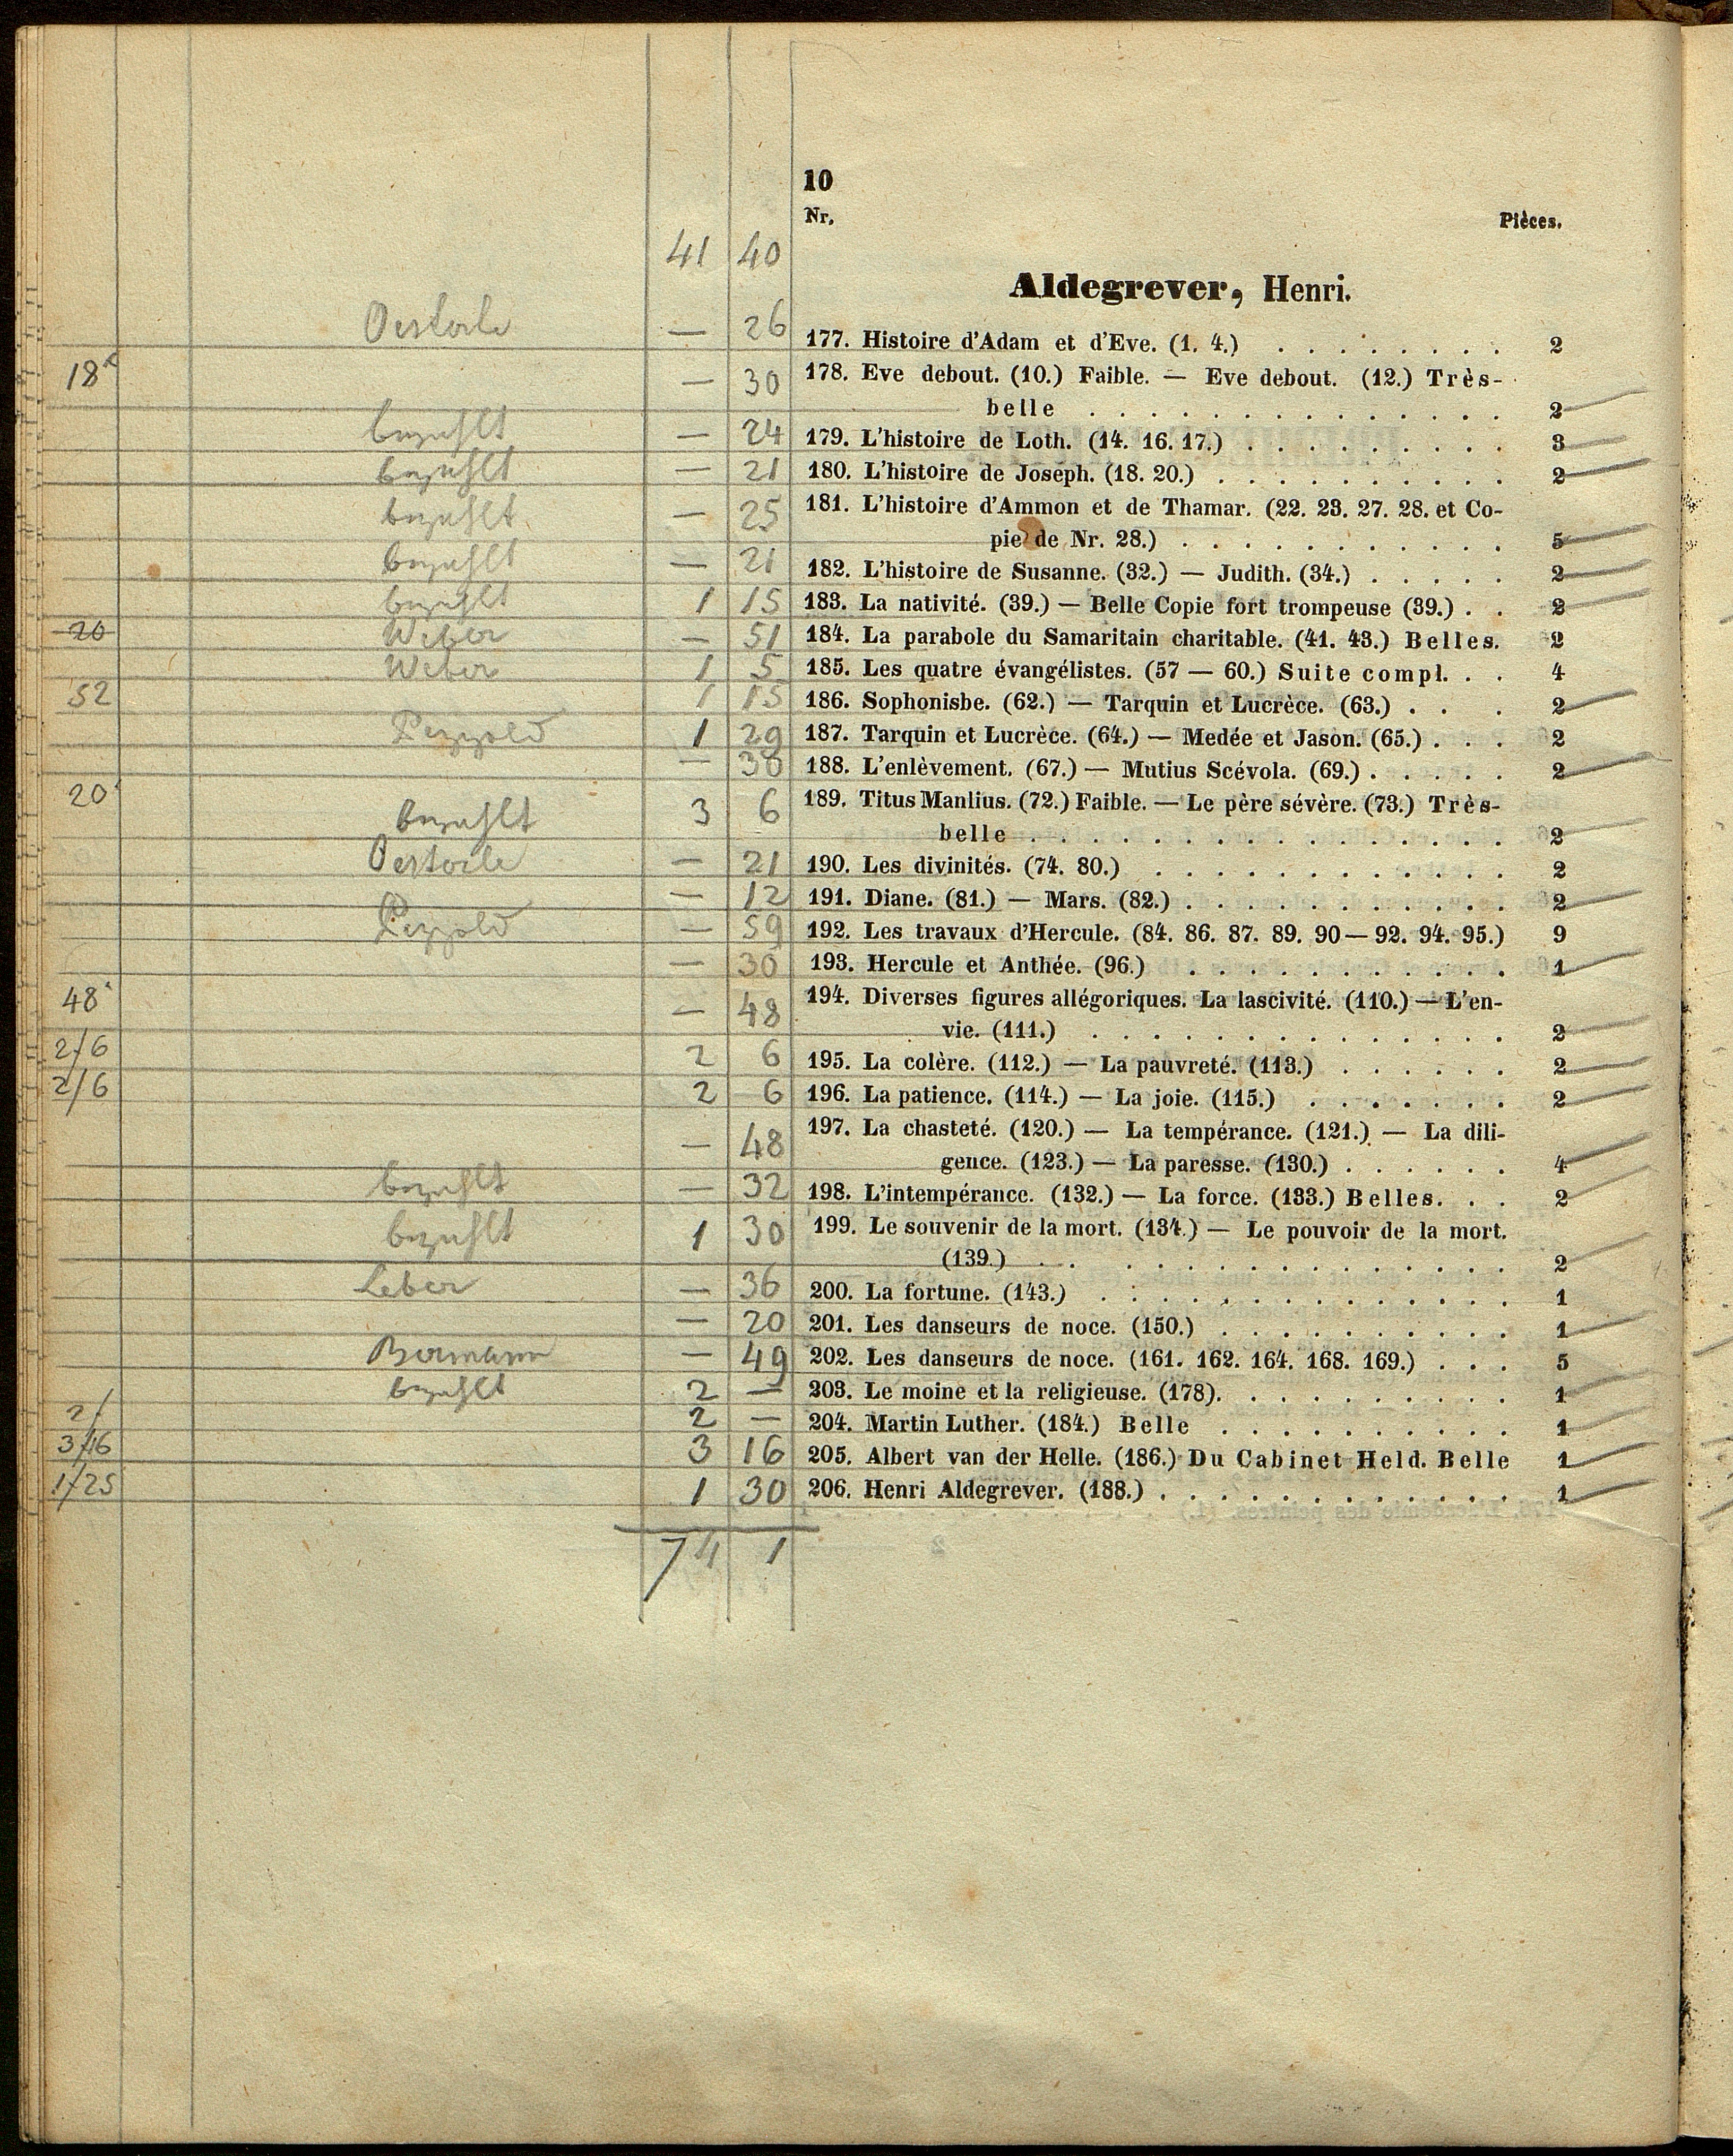 10
Nr. Pièces.
41 40
Aldegrever, Henri.
Oesterle — 26 177. Histoire d'Adam et d'Eve. (1. 4.) . . . . . . . . 2
18 — 30 178. Eve debout. (10.) Faible. — Eve debout. (12.) Très-
belle . . . . . . . . . . . . . . 2
bezahlt — 24 179. L'histoire de Loth. (14. 16. 17.) . . . . . . . . . 3
bezahlt — 21 180. L'histoire de Joseph. (18. 20.) . . . . . . . . . . 2
bezahlt — 25 181. L'histoire d'Ammon et de Thamar. (22. 23. 27. 28. et Co-
pie de Nr. 28.) . . . . . . . . . . . 5
bezahlt — 21 182. L'histoire de Susanne. (32.) — Judith. (34.) . . . . . 2
bezahlt 1 15 183. La nativité. (39.) — Belle Copie fort trompeuse (39.) . . 2
20 Weber — 51 184. La parabole du Samaritain charitable. (41. 43.) Belles. 2
Weber 1 5 185. Les quatre évangélistes. (57 — 60.) Suite compl. . . 4
52 1 15 186. Sophonisbe. (62.) — Tarquin et Lucrèce. (63.) . . . 2
Pezzold 1 29 187. Tarquin et Lucrèce. (64.) — Medée et Jason. (65.) . . . 2
— 30 188. L'enlèvement. (67.) — Mutius Scévola. (69.) . . . . . 2
20 bezahlt 3 6 189. Titus Manlius. (72.) Faible. — Le père sévère. (73.) Très-
belle . . . . . . . . . . . . . . . . 2
Oesterle — 21 190. Les divinités. (74. 80.) . . . . . . . . . . . . 2
— 12 191. Diane. (81.) — Mars. (82.) . . . . . . . . . . . 2
Pezzold — 59 192. Les travaux d'Hercule. (84. 86. 87. 89. 90 — 92. 94. 95.) 9
— 30 193. Hercule et Anthée. (96.) . . . . . . . . . . . 1
48 — 48 194. Diverses figures allégoriques. La lascivité. (110.) — L'en-
vie. (111.) . . . . . . . . . . . . . . 2
2/6 2 6 195. La colère. (112.) — La pauvreté. (113.) . . . . . . 2
2/6 2 6 196. La patience. (114.) — La joie. (115.) . . . . . . . 2
— 48 197. La chasteté. (120.) — La tempérance. (121.) — La dili-
gence. (123.) — La paresse. (130.) . . . . . . 4
bezahlt — 32 198. L'intempérance. (132.) — La force. (133.) Belles. . . 2
bezahlt 1 30 199. Le souvenir de la mort. (134.) — Le pouvoir de la mort.
(139.) . . . . . . . . . . . . . . . 2
Leber — 36 200. La fortune. (143.) . . . . . . . . . . . . . . 1
— 20 201. Les danseurs de noce. (150.) . . . . . . . . . . 1
Bormann — 49 202. Les danseurs de noce. (161. 162. 164. 168. 169.) . . . 5
bezahlt 2 — 203. Le moine et la religieuse. (178). . . . . . . . . . 1
2/ 2 — 204. Martin Luther. (184.) Belle . . . . . . . . . . 1
3/16 3 16 205. Albert van der Helle. (186.) Du Cabinet Held. Belle 1
1/25 1 30 206. Henri Aldegrever. (188.) . . . . . . . . . . . . 1
74 1